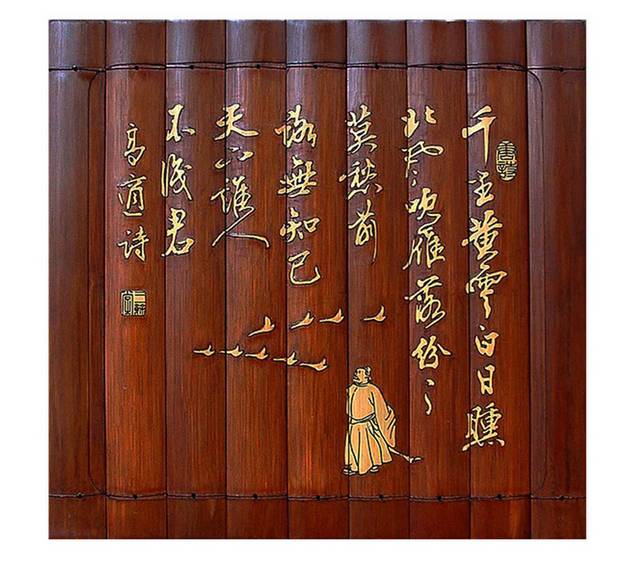 千里黄雲白日曛
北風吹雁雪纷纷
莫愁前
路無知己
天下誰人
不識君
高適詩